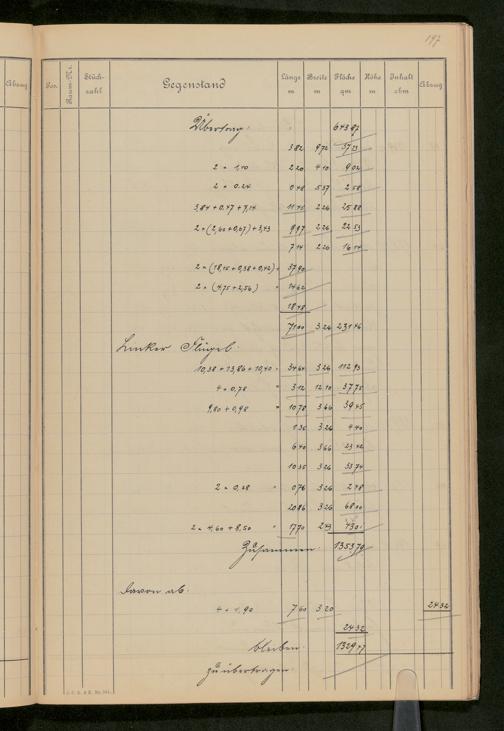 197
Abzug Pos. Raum-Nr. Stück-zahl Gegenstand Länge m Breite m Fläche qm Höhe m Inhalt cbm Abzug
Übertrag. 643 87
3 82 9 72 37 13
2 × 1,10 2 20 4 10 9 02
2 × 0.24 0 48 5 37 2 58
3,84 + 0,47 + 7,14 11 45 2 26 25 88
2 × (2,60 + 0,67) + 3,43 9 97 2 26 22 53
7 14 2 26 16 14
2 × (18,15 + 0,38 + 0,42) = 37 90
2 × (4,75 + 2,56) " 14 62
18 48
71 00 3 26 231 46
Linker Flügel.
10,38 + 13,86 + 10,40 = 34 64 3 26 112 93
4 × 0,78 " 3 12 12 10 37 75
9,80 + 0,98 " 10 78 3 66 39 45
1 35 3 26 4 40
6 40 3 66 23 42
10 35 3 26 33 74
2 × 0,38 " 0 76 3 26 2 48
20 86 3 26 68 00
2 × 4,60 + 8,50 " 17 70 2 43
Zusammen. 1353 79
Davon ab.
4 × 1,90 7 60 3 20 24 32
24 32
bleiben. 1329 47
zu übertragen.